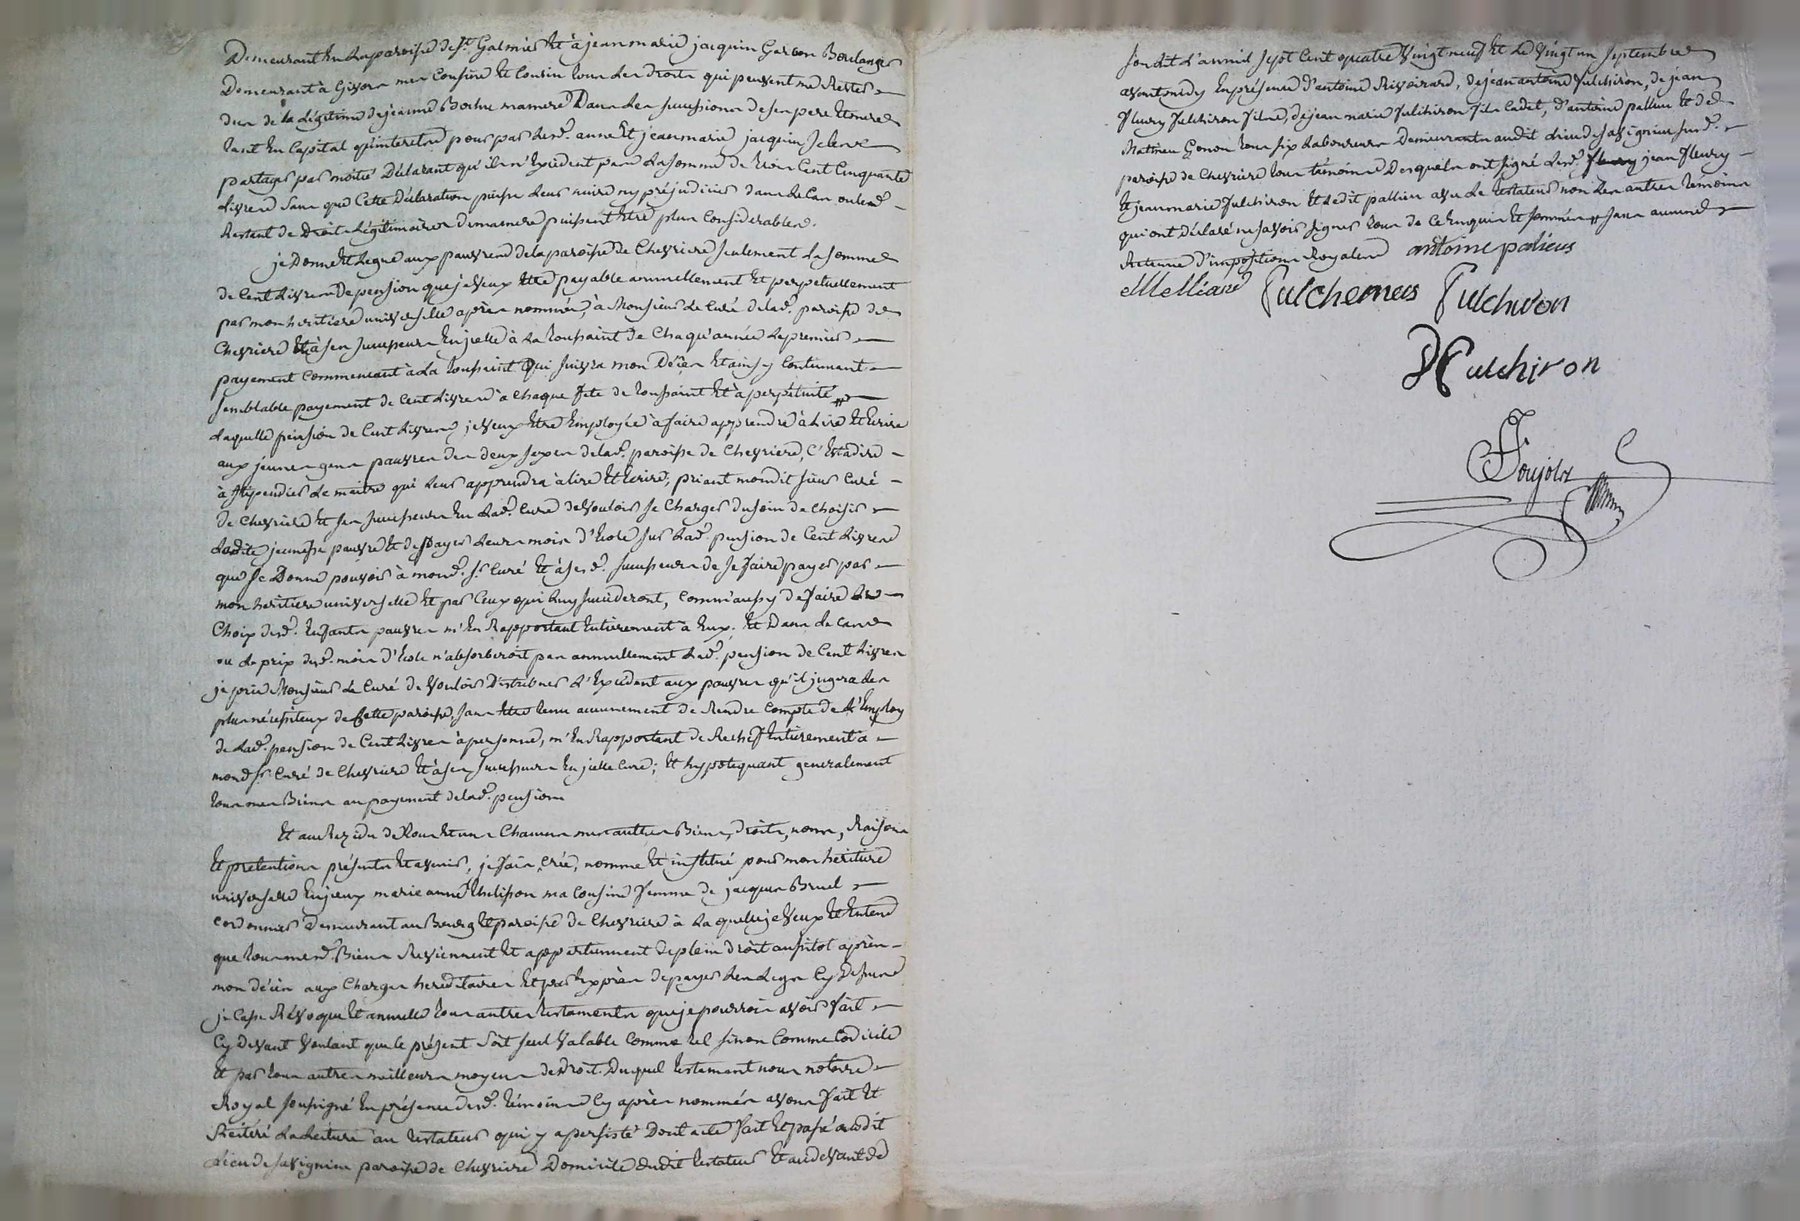 Demeurant En la paroisse de St. Galmier Et à jean marie jacquin Garcon Boulanger
Demeurant à Givors mes Cousine Et Cousin tous les droits qui peuvent me Rester
dus de la Légitime de jeanne Boche ma mere Dans les successions de ses pere Et mere
tant En Capital qu'interets pour par lesd. anne Et jean marie jacquin se les
partager par moitié Déclarant qu'ils n'Excedent pas la somme de trois Cent Cinquante
Livres sans que Cette Déclaration puisse leur nuire ny préjudicier dans le Cas ou lesd.
Restant de Droits Légitimaires de ma mere puissent Etre plus Considerables.
je Donne Et Legue aux pauvres de la paroisse de Chevriere seulement la somme
de Cent Livres De pension que je veux Etre payable annuellement Et perpetuellement
par mon heritiere universelle après nommée, à Monsieur le Curé de lad. paroisse de
Chevriere Et à ses successeurs En icelle à la toussaint de Chaqu'année le premier
payement Commencant à la toussaint Qui suivra mon Décès Et ainsy Continuant
semblable payement de Cent Livres à Chaque fete de toussaint Et à perpétuité
Laquelle pension de Cent Livres je veux Etre Employée à faire apprendre à Lire Et Ecrire
aux jeunes gens pauvres des deux sexes de lad. paroisse de Chevriere, C'Est à dire
à stipendier Le maitre qui leur apprendra à lire Et Ecrire, priant mondit sieur Curé
de Chevriere Et ses successeurs En lad. Cure de vouloir se Charger du soin de Choisir
ladite jeunesse pauvre Et de payer leurs mois d'Ecole sur lad. pension de Cent Livres
que je Donne pouvoir à mond. Sr. Curé Et à sesd. successeurs de se faire payer par
mon heritiere universelle Et par Ceux qui luy succéderont, Comm'aussy de faire le
Choix desd. Enfants pauvres m'En Rapportant Entierement à Eux. Et Dans le Cas
ou le prix desd. mois d'Ecole n'absorberoit pas annuellement lad. pension de Cent Livres
je prie Monsieur le Curé de vouloir Distribuer l'Excédent aux pauvres qu'il jugera les
plus nécessiteux de Cette paroisse, sans Etre tenu aucunement de Rendre Compte de l'Employ
de lad. pension de Cent Livres à personne, m'En Rapportant de Rechef Entierement à
mond. Sr. Curé de Chevriere Et à ses successeurs En icelle Cure; Et hypotequant generalement
tous mes Biens au payement de lad. pension
Et au Rezidu de tous Et uns Chacuns mes autres Biens, droits, noms, Raisons
Et prétentions présents Et avenir, je fais, Crée, nomme Et institue pour mon héritiere
universelle Marie anne Thelisson ma Cousine femme de jacques Bruel
Cordonnier Demeurant au Bourg Et paroisse de Chevriere à Laquelle je veux Et Entend
que tous mesd. Biens Reviennent Et appartiennent de plein droit aussitot après
mon décès aux Charges hereditaires Et par Exprès de payer les Legs Cy Dessus
je Casse Révoque Et annulle tous autres testaments que je pourrois avoir fait
Cy devant voulant que le présent soit seul valable Comme tel sinon Comme Codicile
Et par tous autres meilleurs moyens de Droit. Duquel testament nous notaire
Royal soussigné En présence desd. témoins Cy après nommés avons fait Et
Réiteré la lecture au testateur qui y a persisté Dont acte fait Et passé audit
Lieu de Savignieu paroisse de Chevriere Domicile dudit testateur Et au devant de
son lit l'an mil sept Cent quatre vingt neuf Et le vingt un septembre
avant midy En présence d'antoine Rivoirard, de jean antoine fulchiron, de jean
fleury fulchiron filue, de jean marie fulchiron fils Cadet, d'antoine pallieu Et de
Mathieu Gonon tous six Laboureurs Demeurants audit Lieu de Savignieu susd.
paroisse de Chevriere tous témoins Desquels ont signé Lesd. jean fleury
Et jean marie fulchiron Et ledit pallieu avec le testateur non les autres témoins
qui ont Déclaré ne savoir signer tous de Ce Enquis Et sommés sans aucune
Retenue d'impositions Royales antoine palieus
Fulchemeis Fulchiron
Fulchiron
Poujolz